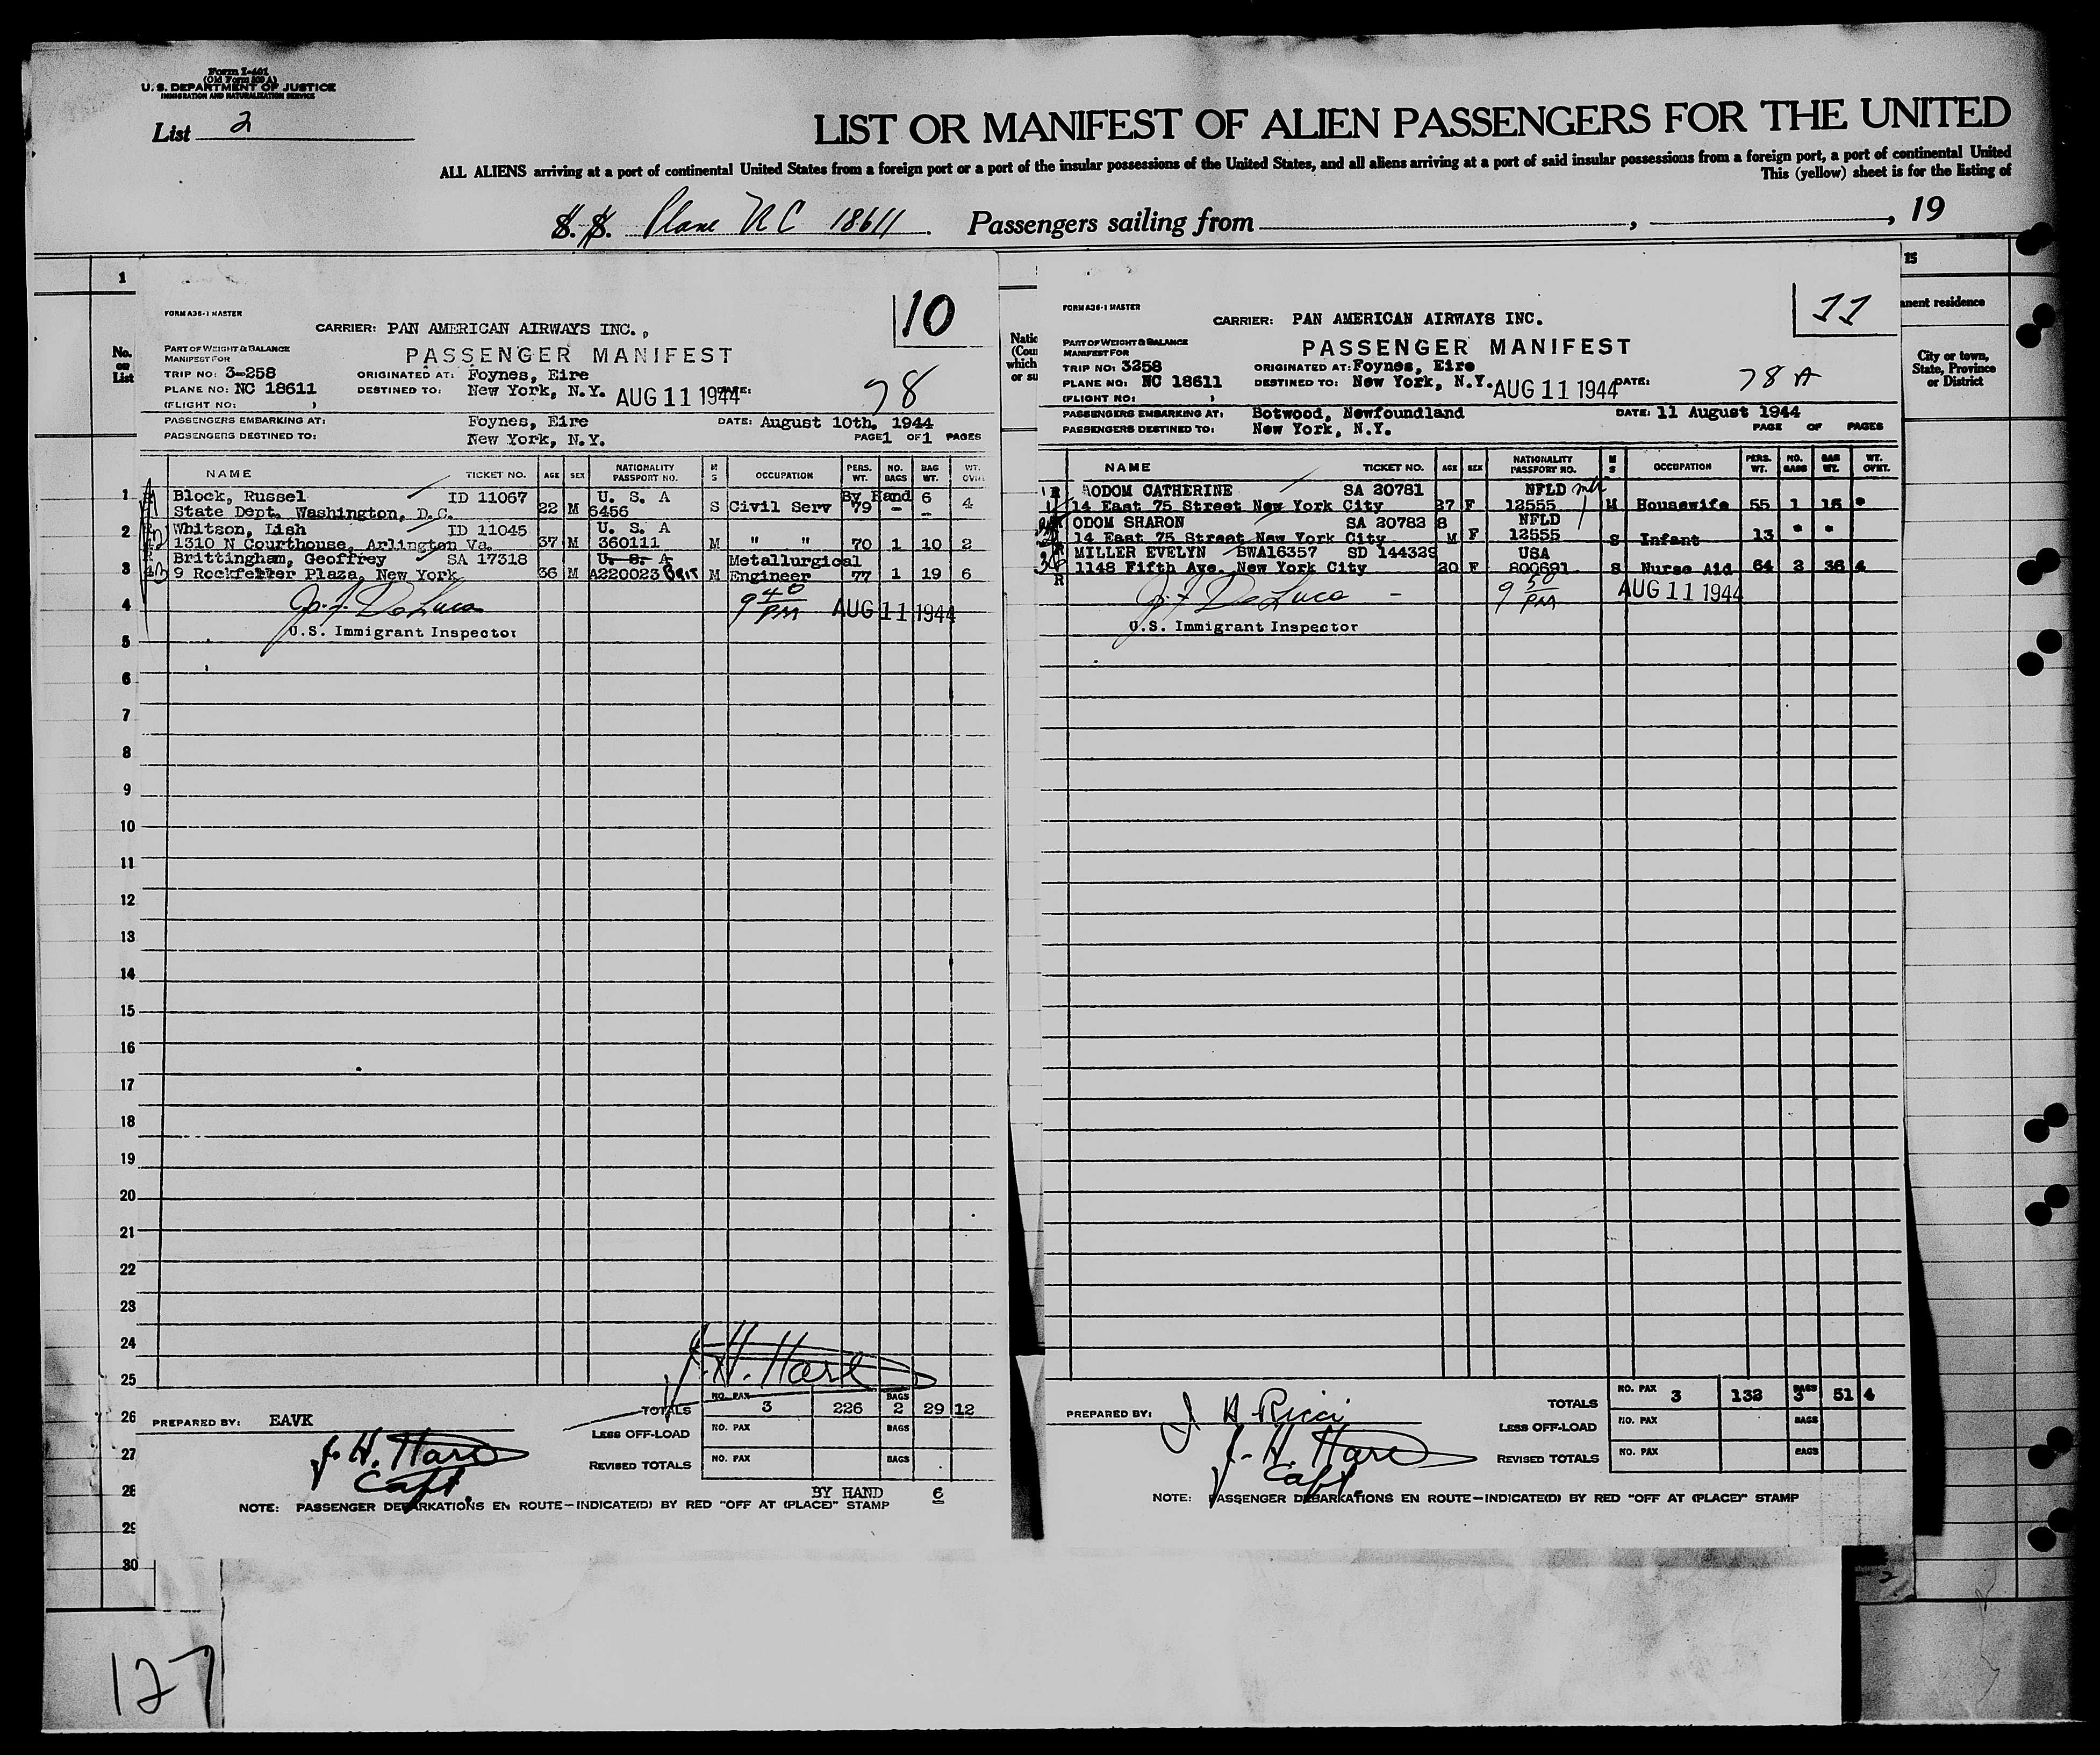 Form I-401
(Old Form 500 A)
U. S. DEPARTMENT OF JUSTICE
IMMIGRATION AND NATURALIZATION SERVICE
List 2
LIST OR MANIFEST OF ALIEN PASSENGERS FOR THE UNITED
ALL ALIENS arriving at a port of continental United States from a foreign port or a port of the insular possessions of the United States, and all aliens arriving at a port of said insular possessions from a foreign port, a port of continental United
This (yellow) sheet is for the listing of
S. S. Plane NC 18611. Passengers sailing from , , 19
1
No. on List
FORM A36-1 MASTER
10
CARRIER: PAN AMERICAN AIRWAYS INC.,
PART OF WEIGHT & BALANCE
PASSENGER MANIFEST
MANIFEST FOR
TRIP NO: 3-258 ORIGINATED AT: Foynes, Eire
PLANE NO: NC 18611 DESTINED TO: New York, N.Y. AUG 11 1944 78
(FLIGHT NO: )
PASSENGERS EMBARKING AT: Foynes, Eire DATE: August 10th, 1944
PASSENGERS DESTINED TO: New York, N.Y. PAGE 1 OF 1 PAGES
NAME TICKET NO. AGE SEX NATIONALITY PASSPORT NO. M S OCCUPATION PERS. WT. NO. BAGS BAG WT. WT.
1 Block, Russel ID 11067 U. S. A By Hand 6
State Dept. Washington, D.C. 22 M 6456 S Civil Serv 79 - - 4
2 Whitson, Lish ID 11045 U. S. A
1310 N Courthouse, Arlington Va. 37 M 360111 M " " 70 1 10 2
Brittingham, Geoffrey SA 17318 U. S. A Metallurgical
3 9 Rockfeller Plaza, New York 36 M A220023 BRIT M Engineer 77 1 19 6
4 Jos. F. DeLuca 9 40 PM AUG 11 1944
U.S. Immigrant Inspector
5
6
7
8
9
10
11
12
13
14
15
16
17
18
19
20
21
22
23
24
J. H. Hart
25
NO. PAX BAGS
TOTALS 3 226 2 29 12
26 PREPARED BY: EAVK
LESS OFF-LOAD NO. PAX BAGS
27 J. H. Hart
REVISED TOTALS NO. PAX BAGS
Capt.
28 BY HAND 6
NOTE: PASSENGER DEBARKATIONS EN ROUTE—INDICATE(D) BY RED "OFF AT (PLACE)" STAMP
29
30
127
FORM A36-1 MASTER
11
CARRIER: PAN AMERICAN AIRWAYS INC.
PART OF WEIGHT & BALANCE
PASSENGER MANIFEST
MANIFEST FOR
TRIP NO: 3258 ORIGINATED AT: Foynes, Eire
PLANE NO: NC 18611 DESTINED TO: New York, N.Y. AUG 11 1944 DATE: 78 A
(FLIGHT NO: )
PASSENGERS EMBARKING AT: Botwood, Newfoundland DATE: 11 August 1944
PASSENGERS DESTINED TO: New York, N.Y. PAGE OF PAGES
NAME TICKET NO. AGE SEX NATIONALITY PASSPORT NO. M S OCCUPATION PERS. WT. NO. BAGS BAG WT. WT. OVWT.
ODOM CATHERINE SA 20781 NFLD
14 East 75 Street New York City 27 F 12555 M Housewife 55 1 15
ODOM SHARON SA 20782 8 NFLD
14 East 75 Street New York City M F 12555 S Infant 13
MILLER EVELYN BWA16357 SD 144329 USA
1148 Fifth Ave. New York City 20 F 800691 S Nurse Aid 64 2 36 4
Jos. F. DeLuca 9 50 PM AUG 11 1944
U.S. Immigrant Inspector
TOTALS NO. PAX 3 132 BAGS 3 51 4
PREPARED BY: J A Ricci
LESS OFF-LOAD NO. PAX BAGS
J. H. Hart
REVISED TOTALS NO. PAX BAGS
Capt.
NOTE: PASSENGER DEBARKATIONS EN ROUTE—INDICATE(D) BY RED "OFF AT (PLACE)" STAMP
15
nent residence
City or town, State, Province or District